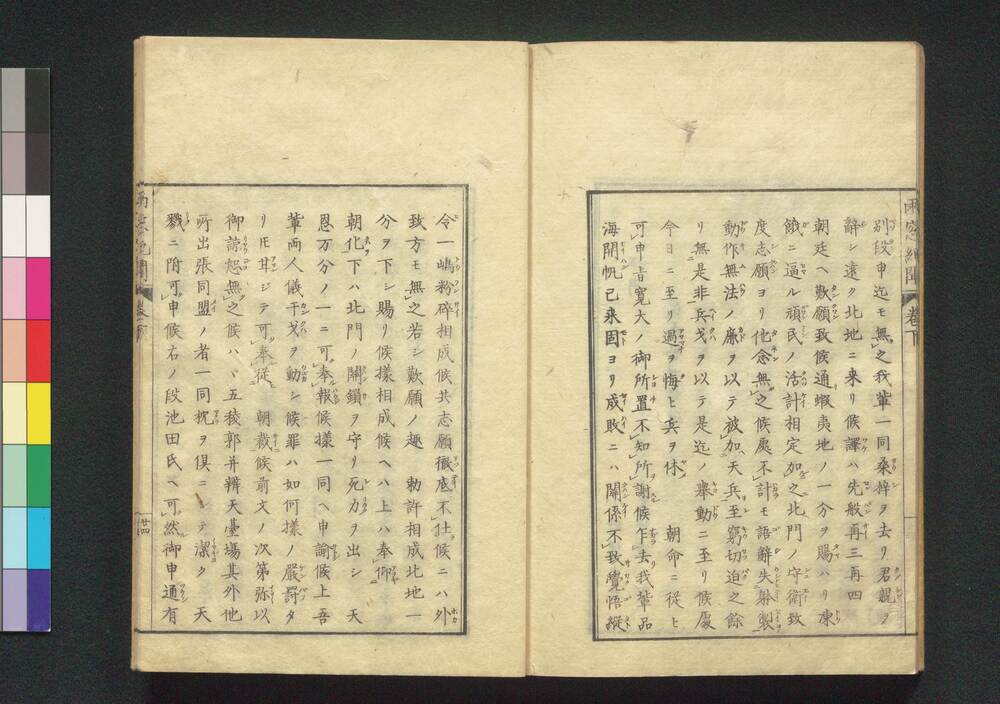 別段申迄モ無之我輩一同桑梓ヲ去リ君親ノ
辭シ遠ク北地ニ来リ候譯ハ先般再三再四
朝廷ヘ歎願致候通蝦夷地ノ一分ヲ賜ハリ凍
餓ニ逼ル頑民ノ活計相定加之北門ノ守衛致
度志願ヨリ他念無之候處不計モ語辭失躰製
動作無法ノ廉ヲ以テ被加天兵至窮切迫之餘
リ無是非兵戈ヲ以テ是迄ノ舉動ニ至リ候處
今日ニ至リ過ヲ悔ヒ兵ヲ休 朝命ニ従ヒ
可申旨寛大ノ御所置不知所謝候乍去我輩品
海開帆已来固ヨリ成敗ニハ關係不致覺悟縦
令一嶋粉碎相成候共志願徹底不仕候ニハ外
致方モ無之若シ歎願ノ趣 勅許相成北地一
分ヲ下シ賜リ候様相成候ヘハ上ハ奉仰
朝化下ハ北門ノ關鎖ヲ守リ死力ヲ出シ 天
恩万分ノ一ニ可奉報候様一同ヘ申諭候上吾
輩両人儀干戈ヲ動シ候罪ハ如何様ノ嚴罰タ
リ𪜈甘ジテ可奉従 朝裁候前文ノ次第弥以
御諒恕無之候ハヽ五稜郭并辨天臺場其外他
所出張同盟ノ者一同枕ヲ倶ニシテ潔ク 天
戮ニ附可申候右ノ段池田氏ヘ可然御申通有
巻下
廿四